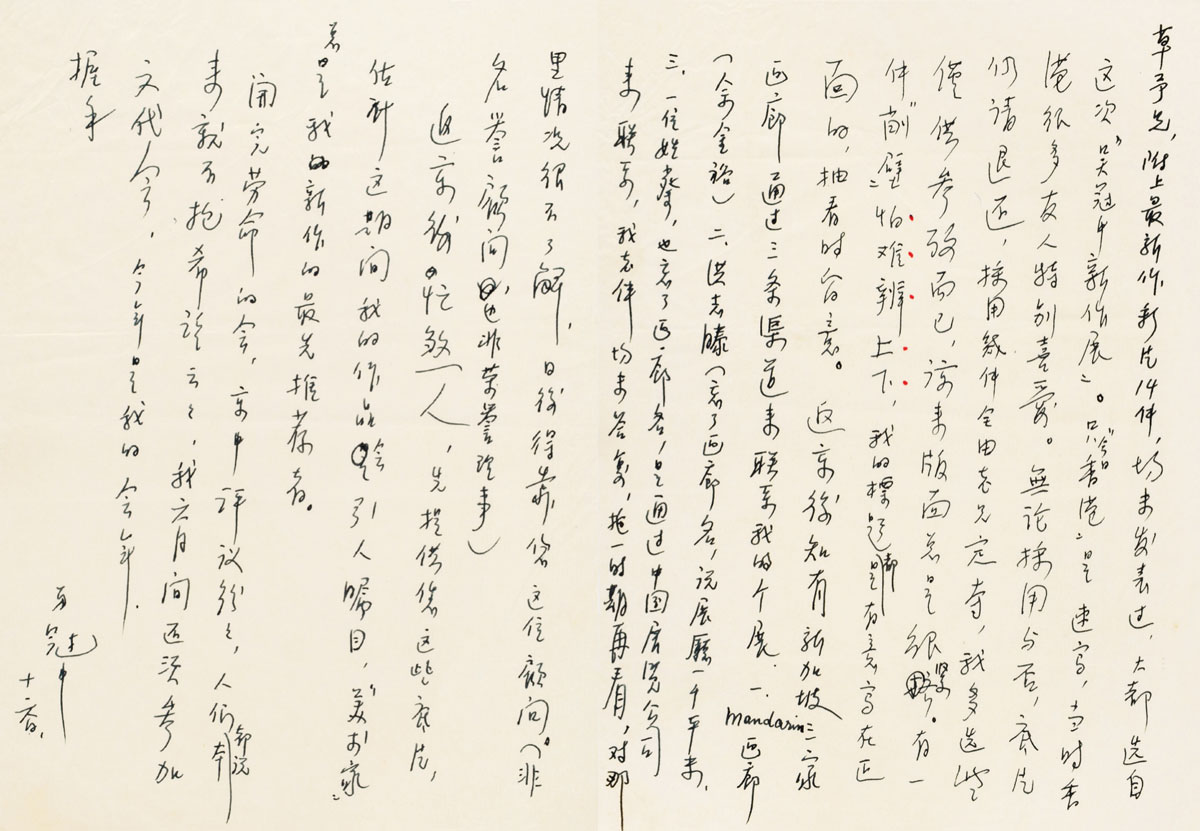 草予兄，附上最新作彩片14件，均未发表过，大都选自
这次“吴冠中新作展”。只“今日香港”是速写，当时香
港很多友人特别喜爱。無论採用与否，底片
仍请退还，採用幾件全由老兄定夺，我多选些
僅供参考而已，谅来版面总是很緊。有一
件“峭壁”怕难辨上下，我的標題都是有意写在正
面的，抽看时留意。返京後知有新加坡三家
画廊通过三条渠道来联系我的个展. 一. Mandarin画廊
（余金裕）二. 洪志滕（忘了画廊名，说展廳一千平米.
三. 一位姓蔡，也忘了画廊名，是通过中国展览公司
来联系，我去伴均未答复，拖一时期再看，对那
里情况很不了解，日後得靠您这位顧问。（非
名誉顧问，也非荣誉理事）
返京後忙煞人，先提供您这些底片，
估計这期间我的作品会引人瞩目，“美术家”
总是我的新作的最先推荐者。
開完劳命的会，京中评议紛紛，人们都说本
来就不抱希望云云，我六月间还须参加
文代会，今年是我的会年.
握手
吴冠中
十六日.